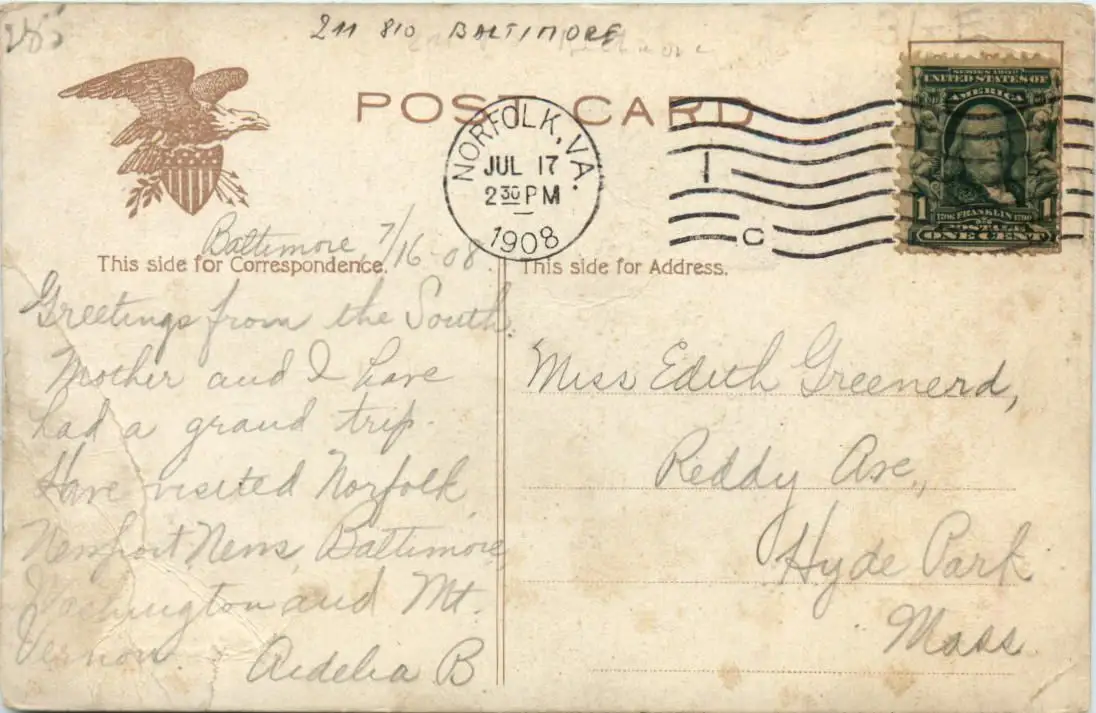 211 810 BALTIMORE
POST CARD
NORFOLK, VA.
JUL 17
2 30 PM
1908
1
C
SERIES 1902
UNITED STATES OF
AMERICA
1 1706 FRANKLIN 1790 1
POSTAGE
ONE CENT
Baltimore 7/16-08
This side for Correspondence.
Greetings from the South
Mother and I have
had a grand trip.
Have visited Norfolk
Newport News, Baltimore,
Washington and Mt.
Vernon.
Aidelia B
This side for Address.
Miss Edith Greenerd,
Reddy Ave.,
Hyde Park
Mass.